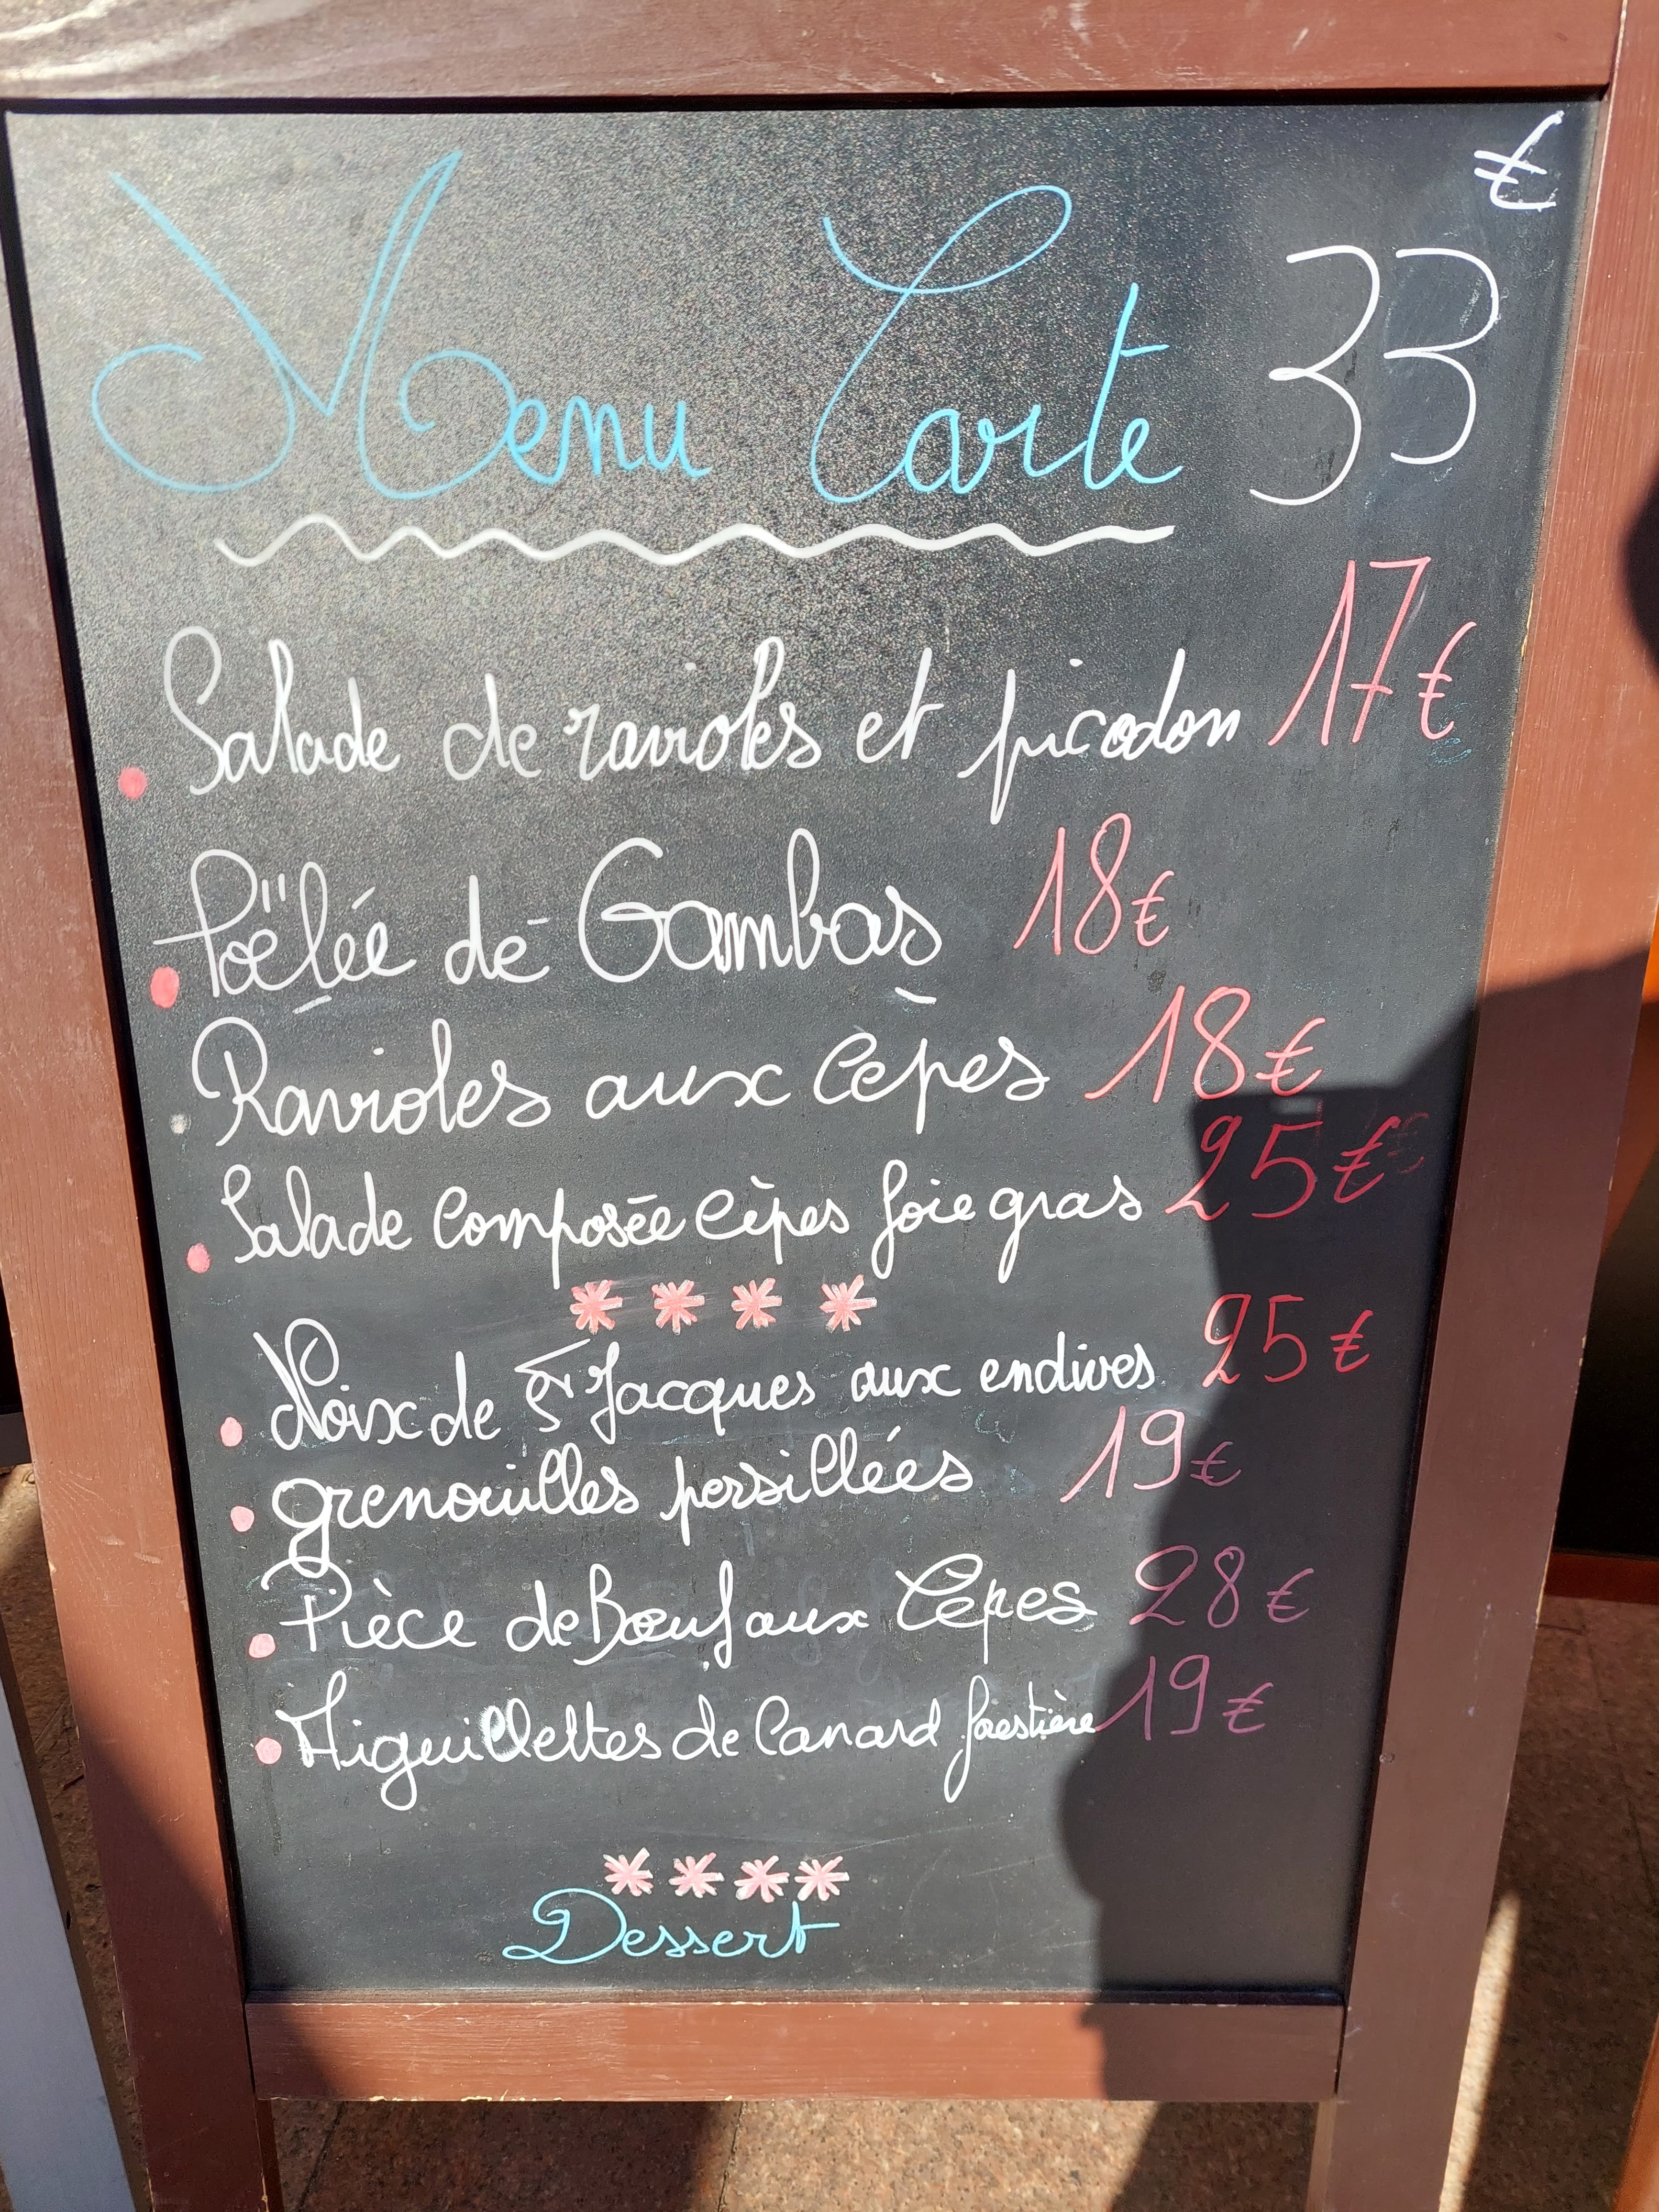 €
Menu Carte 33
Salade de ravioles et picodon 17€
Poëlée de Gambas 18€
Ravioles aux Cèpes 18€
Salade Composée Cèpes foie gras 25€
****
Noix de St Jacques aux endives 25€
grenouilles persillées 19€
Pièce de Bœuf aux Cèpes 28€
Aiguillettes de Canard forestière 19€
****
Dessert